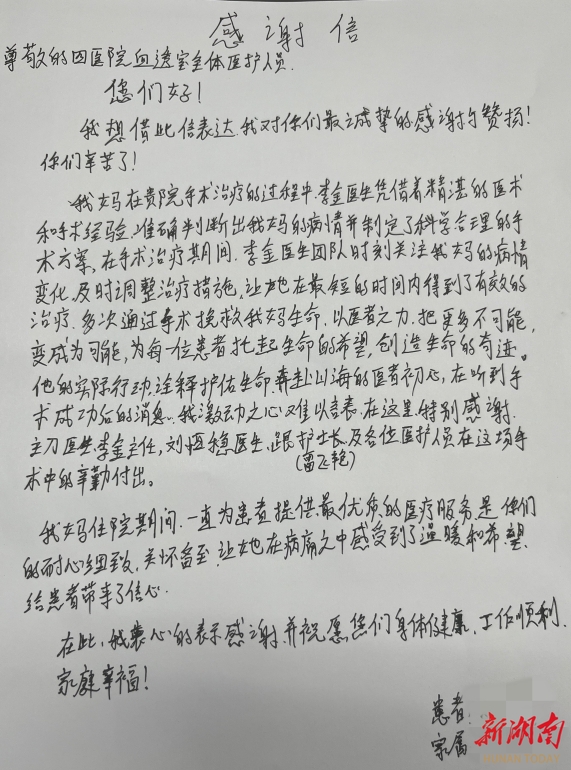 感谢信
尊敬的四医院血透室全体医护人员.
您们好!
我想借此信表达我对你们最立成挚的感谢与赞扬!
你们辛苦了!
我妈在贵院手术治疗的过程中.李金医生凭借着精湛的医术
和手术经验.准确判断出我妈的病情并制定了科学合理的手
术方案,在手术治疗期间.李金医生团队时刻关注我妈的病情
变化,及时调整治疗措施,让她在最短的时间内得到了有效的
治疗.多次通过手术挽救我妈生命.以医者之力.把更多不可能,
变成为可能,为每一位患者托起生命的希望,创造生命的奇迹。
他的实际行动,诠释护佑生命.奔赴山海的医者初心,在听到手
术成功后的消息.我激动之心难以言表.在这里.特别感谢.
主刀医生.李金主任,刘恒稳医生,跟护士长,及各位医护人员在这场手
(雷飞艳)
术中的辛勤付出。
我妈住院期间.一直为患者提供.最优质的医疗服务.是你们
的耐心细致,关怀备至,让她在病痛之中感受到了温暖和希望.
给患者带来了信心.
在此,我衷心的表示感谢.并祝愿您们身体健康.工作顺利.
家庭幸福!
患者:
家属
新湖南